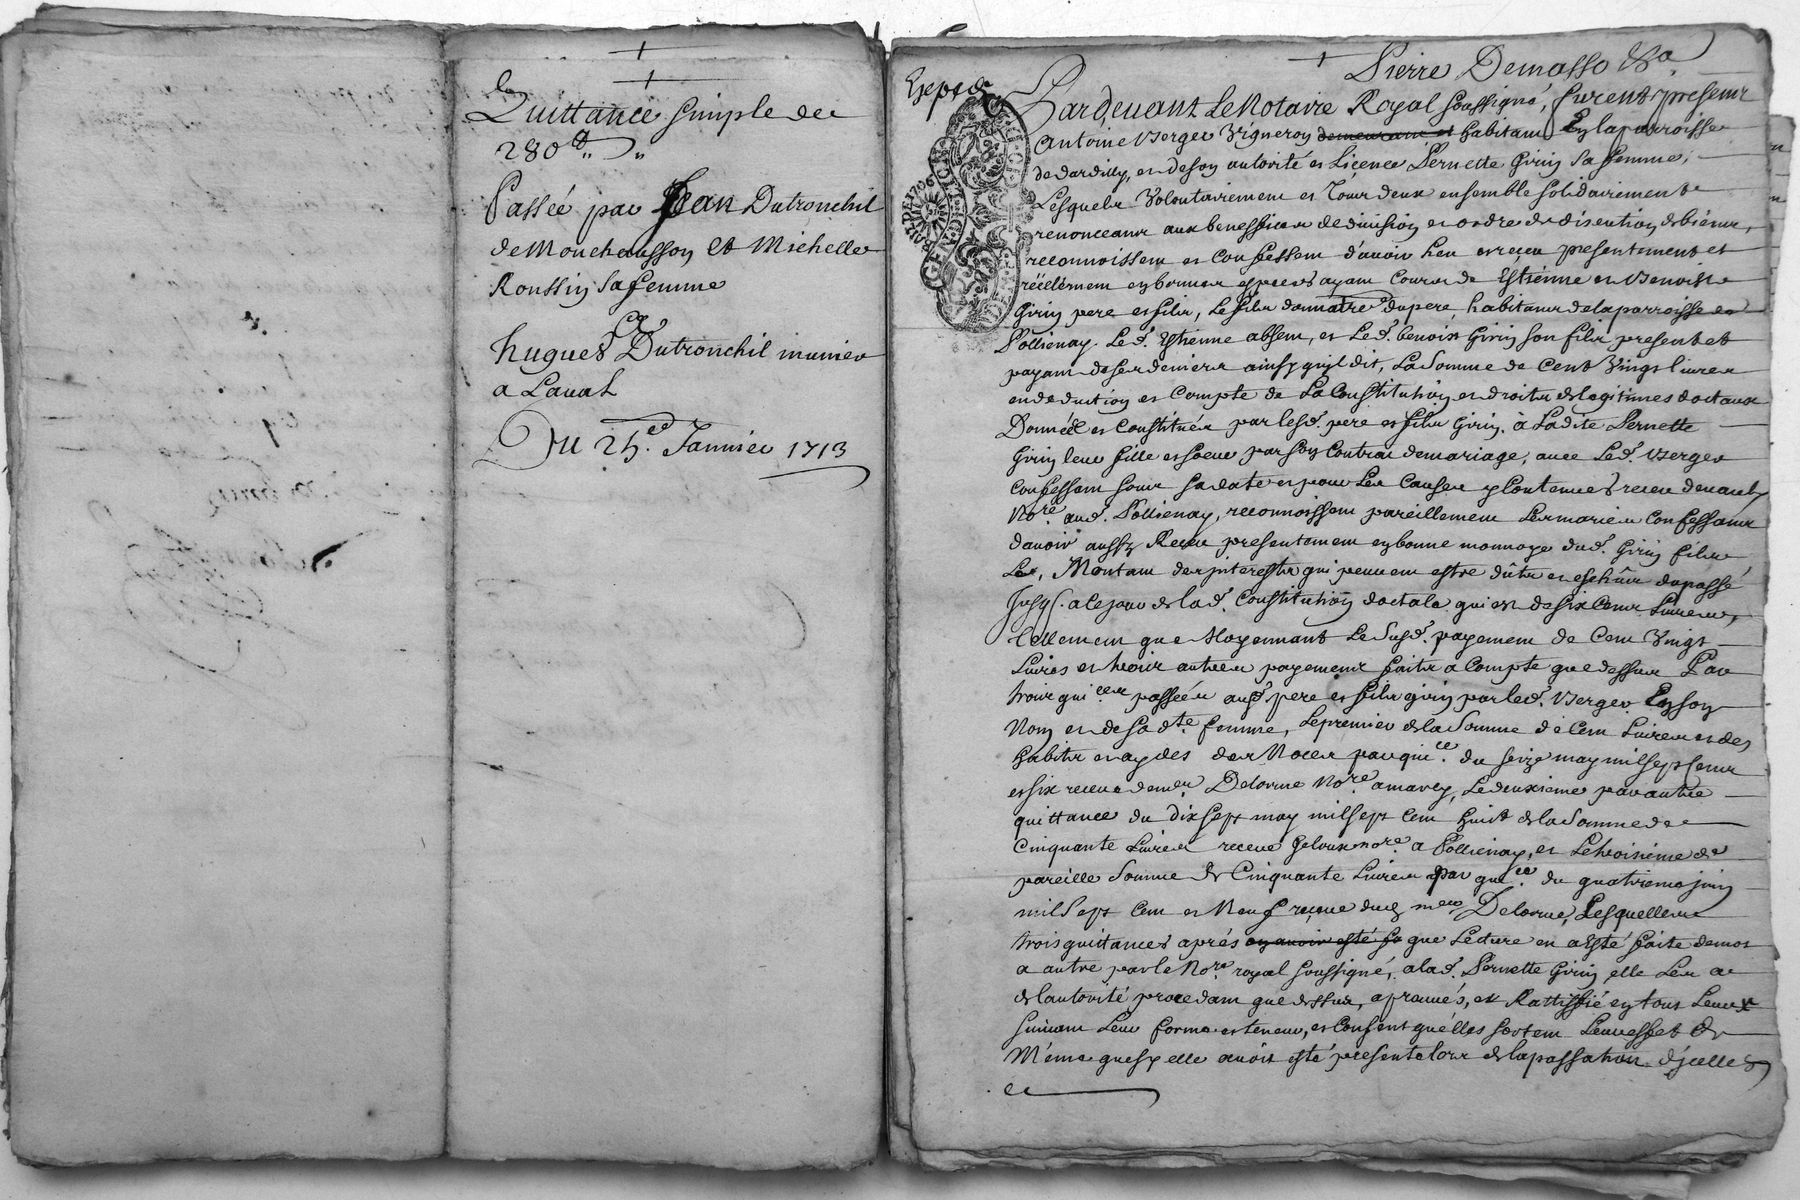 Quittance simple de
280 ₶
Passée par Jean Dutronchil
de Monchausson Et Michelle
Roussin sa femme
a
hugues Dutronchil munier
a Laual
Du 25.e Januier 1713
Exped
Pierre Demasso
Pardeuant Le Notaire Royal soussigné, furent presens
Antoine Verger Vigneron demeurant et habitans En la parroisse
de dardilly, et de son autorité et Licence Pernette Girin sa femme;
Lesquels Volontairement et Tous deux ensemble solidairement
renonceant aux beneffices de diuision et ordre de discution de biens,
reconnoissent et Confessent d'auoir heu et receu presentement et
réellement en bonnes especes ayant Cours de Estienne et Benoist
Girin pere et filz, Le filz donnatre du pere, habitans de la parroisse de
Pollienay. Le d. Estienne absent, et Le d. benoist Girin son filz present et
payant de ses deniers ainsy quil dit, La Somme de Cent Vingt liures
en deduction et Compte de La Constitution et droits de legitimes doctaux
Donnée et Constituée par lesd. pere et filz Girin. à La dite Pernette
Girin leur fille et soeur par son Contrat de mariage, auec Le d. Verger
Confessant sous sa date et pour Les Causes y Contenues receu deuant
Nore. aud. Pollienay, reconnoissent pareillement Les mariez Confessans
dauoir aussy Receu presentement en bonne monnoye dud. Girin filz
Le, Montant des interests qui peuuent estre dûts et eschûs du passé
Jusq. a ce jour de lad. Constitution doctale qui est de six Cent Liures,
tellement que Moyennant Le susd. payement de Cent Vingt
Liures et trois autres payements faits a Compte que dessus Par
trois quices passées ausd. pere et filz girin par led. Verger En son
Nom et de sa dte femme, Le premier de la Somme de Cent Liures et des
habits et aydes des Noces par quice. du seize may mil sept Cens
et six receue de me Delorme Nore a marcy, Le deuxieme par autre
quittance du dix sept may mil sept Cent huit de la Somme de
Cinquante Liures receue Geloux nore. a Pollienay, et Le troisieme de
pareille Somme de Cinquante Liures par quice du quatrieme juin
mil Sept Cent et Neuf receue dud me. Delorme, Lesquelles
trois quittances aprés en auoir esté fa que Lecture en a Esté faite de mot
a autre par le Nore royal soussigné, a lad. Pernette Girin elle Les a
de lautorité procedant que dessus, aprouués, et Rattiffié en tous Leurs
suiuant Leur forme et teneur, et Consent quelles sortent Leur effet de
Même que sy elle auoit esté presente lors de la passation d'jcelles
et